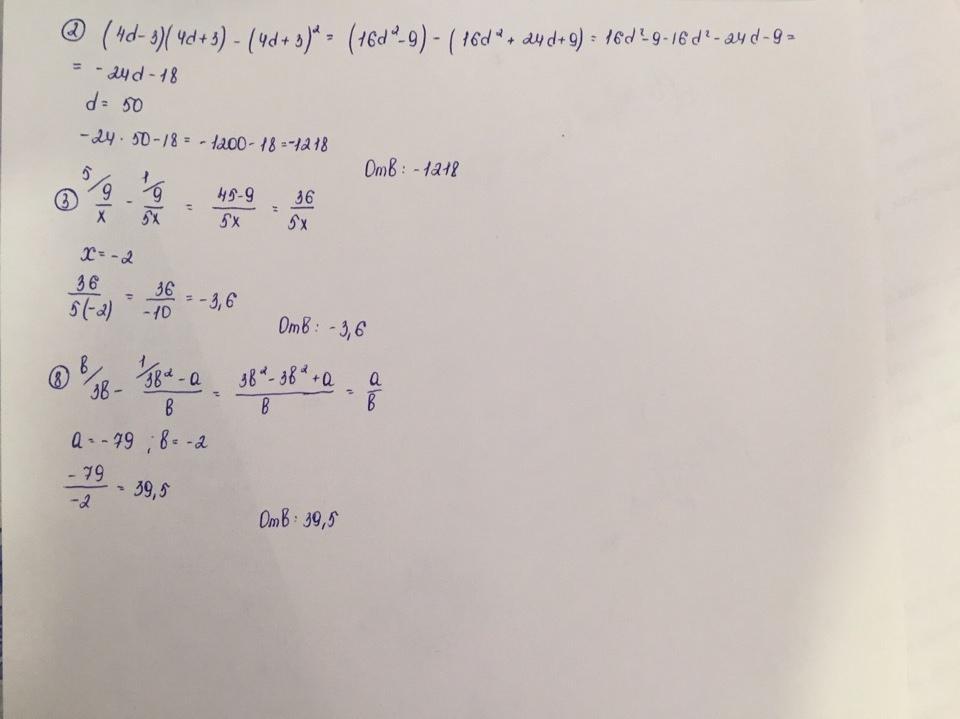 ② (4d-3)(4d+3) - (4d+3)² = (16d²-9) - (16d² + 24d+9) = 16d²-9-16d²-24d-9=
= -24d-18
d= 50
-24 · 50-18 = -1200-18=-1218
Отв: -1218
③ 5/ 9/x - 1/ 9/5x = 45-9/5x = 36/5x
x=-2
36/5(-2) = 36/-10 = -3,6
Отв: -3,6
⑧ в/ 3в - 1/ 3в²-a/в = 3в²-3в²+a/в = a/в
a=-79 ; в=-2
-79/-2 = 39,5
Отв: 39,5